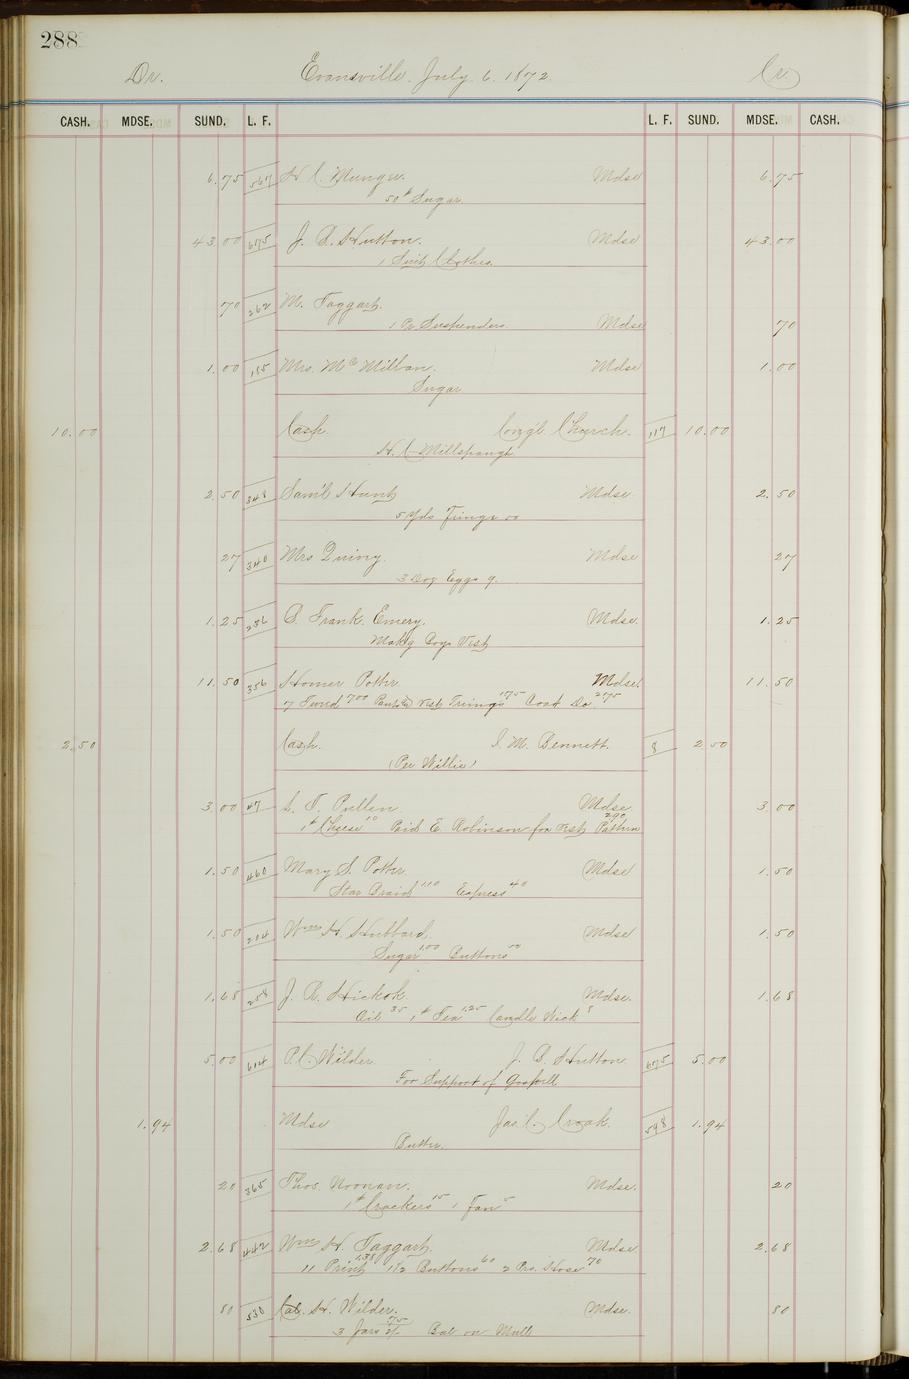 288
Dr. Evansville. July. 6. 1872 Cr.
CASH. MDSE. SUND. L. F. L. F. SUND. MDSE. CASH.
6.75 567 H. C. Munger. Mdse 6.75
50# Sugar
43.00 675 J. B. Hutton. Mdse 43.00
1 Suit Clothes.
70 262 M. Taggart.
1 Pr Suspenders. Mdse 70
1.00 Mrs. McMillan. Mdse 1.00
Sugar
10.00 Cash Cong'l. Church. 117 10.00
H. C. Millspaugh
2.50 348 Sam'l Hunt Mdse 2.50
5 Yds Fringe 50
27 340 Mrs Quiny. Mdse 27
3 Doz Eggs 9.
1.25 256 B. Frank. Emery. Mdse. 1.25
Mak'g Boys Vest
11.50 356 Homer Potter Mdse. 11.50
7 700 Pants & Vest Trimgs 175 Coat Do. 275
2.50 Cash. I. M. Bennett. 8 2.50
(Per Willie)
3.00 47 S. T. Pullen. Mdse 3.00
1# Cheese 10 Paid E. Robinson for Vest Pattern 290
1.50 460 Mary S. Potter. Mdse 1.50
Star Braid 1.10 Express 40
1.50 204 Wm H. Hubbard. Mdse 1.50
Sugar 1.00 Buttons 50
1.68 258 J. R. Hickok. Mdse. 1.68
Oil 35 1# Tea 1.25 Candle Wick 8
5.00 614 P. C. Wilder J. B. Hutton 675 5.00
For Support of Gospell
1.94 Mdse Jas. C. Croak. 598 1.94
Butter.
20 365 Thos. Noonan. Mdse. 20
1# Crackers 15 1 Fan 5
2.68 442 Wm H. Taggart. Mdse 2.68
11 Print 1.38 1 1/2 Buttons 60 2 Prs. Hose 70
80 530 Cal. H. Wilder. Mdse. 80
3 Jars 75 Bal on Mull